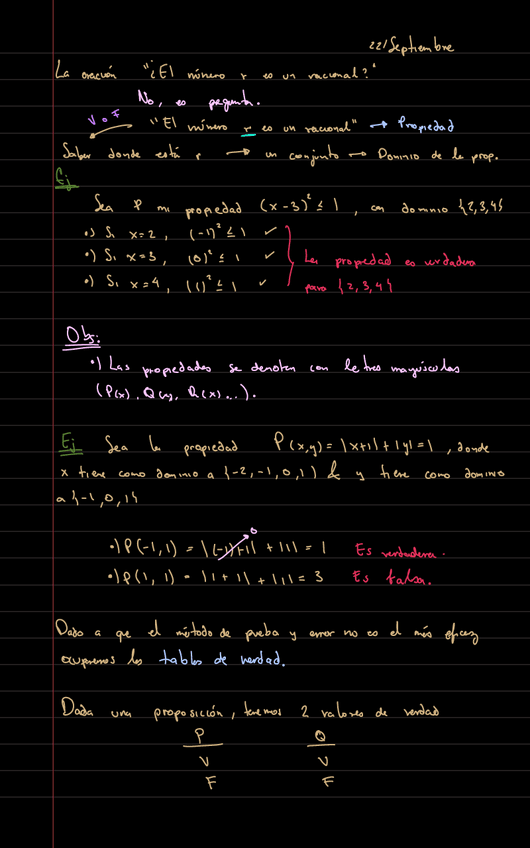 22/Septiembre
La oración "¿El número r es un racional?"
No, es pregunta.
V o F
"El número r es un racional" → Propiedad
Saber donde está r → un conjunto → Dominio de la prop.
Ej
Sea P mi propiedad (x-3)² ≤ 1, con dominio {2,3,4}
•) Si x=2, (-1)² ≤ 1 ✓
•) Si x=3, (0)² ≤ 1 ✓
•) Si x=4, (1)² ≤ 1 ✓
La propiedad es verdadera
para {2,3,4}
Obs:
•) Las propiedades se denotan con letras mayúsculas
(P(x), Q(x), R(x)...).
Ej Sea la propiedad P(x,y)= |x+1|+|y|=1, donde
x tiene como dominio a {-2,-1,0,1} & y tiene como dominio
a {-1,0,1}
0
•) P(-1,1) = |(-1)+1| + |1| = 1 Es verdadera.
•) P(1,1) = |1+1| + |1| = 3 Es falsa.
Dado a que el método de prueba y error no es el más eficaz
ocuparemos las tablas de verdad.
Dada una proposición, tenemos 2 valores de verdad
P Q
V V
F F